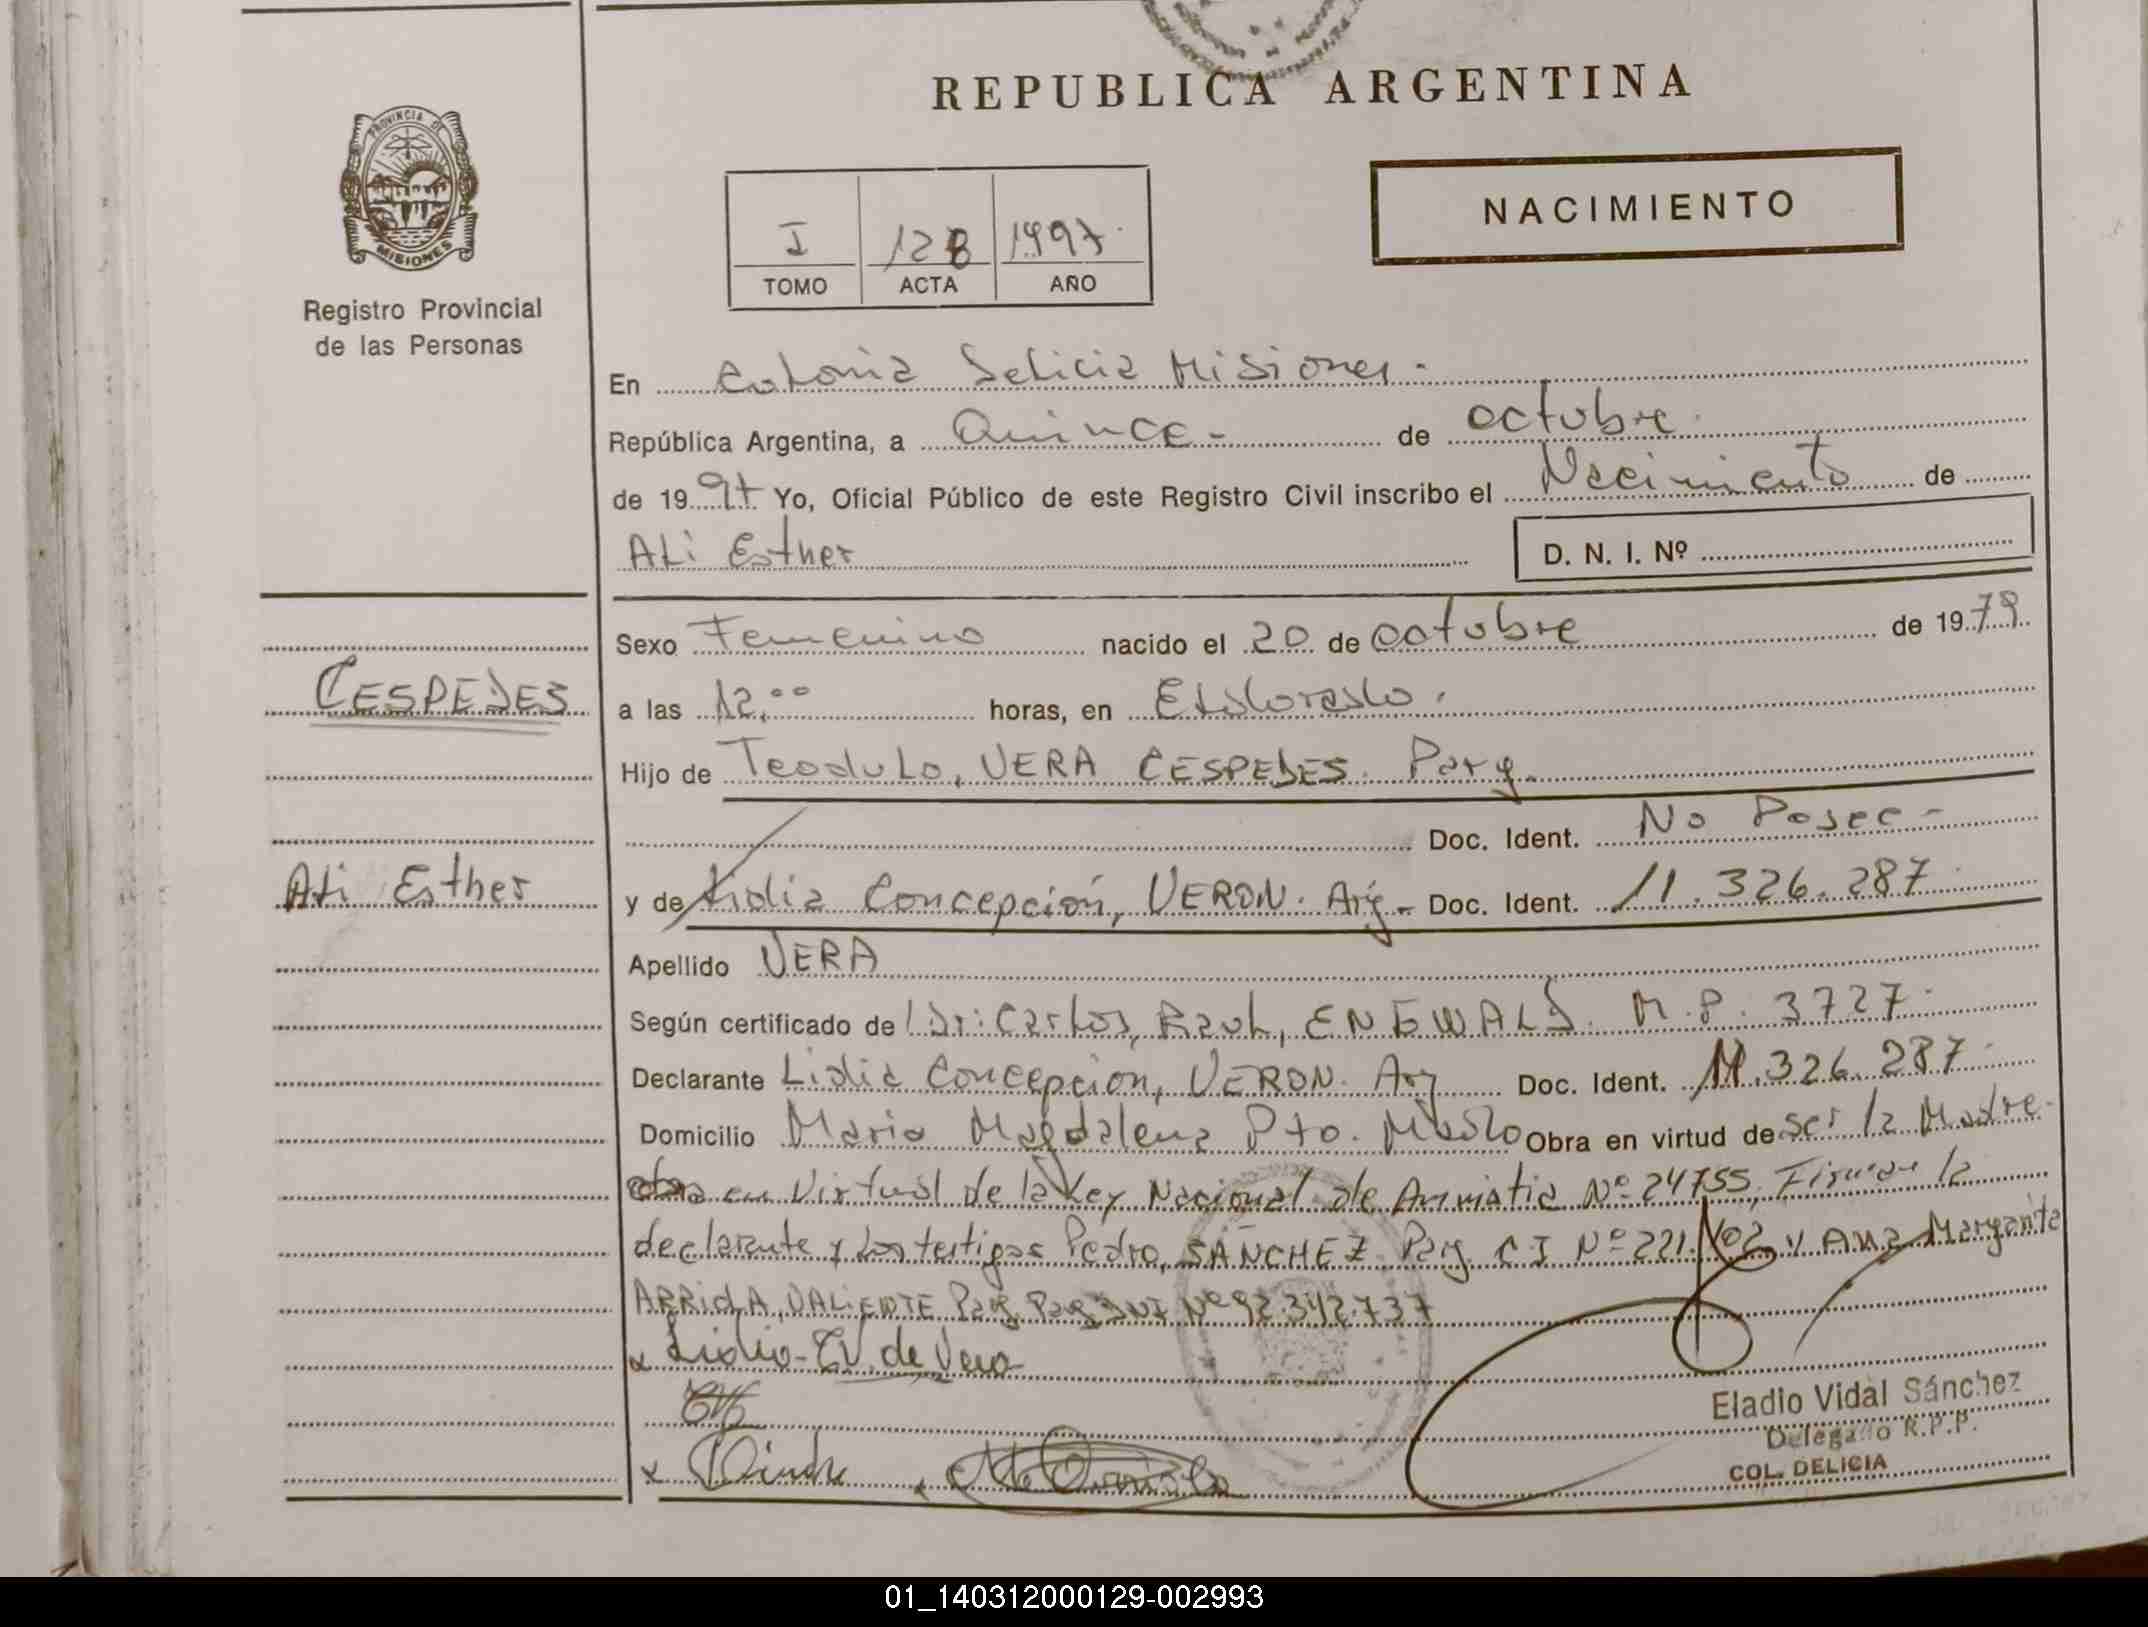 REPUBLICA ARGENTINA
PROVINCIA DE
MISIONES
Registro Provincial
de las Personas
NACIMIENTO
I 128 1997
TOMO ACTA AÑO
En Colonia Delicia Misiones.
República Argentina, a Quince - de octubre.
de 1997 Yo, Oficial Público de este Registro Civil inscribo el Nacimiento de
Ali Esther D. N. I. Nº
Sexo Femenino nacido el 20 de octubre de 1979.
CESPEDES
a las 12.00 horas, en Eldorado.
Hijo de Teodulo, VERA CESPEDES. Parg.
Doc. Ident. No Posee -
Ali Esther
y de Lidia Concepción, VERON. Arg - Doc. Ident. 11.326.287.
Apellido VERA
Según certificado de Dr: Carlos, Raul, M.P. 3727.
Declarante Lidia Concepción, VERON. Arg Doc. Ident. 11.326.287.
Domicilio Maria Magdalena Pto. Obra en virtud de ser la Madre.
en virtud de la Ley Nacional de Amnistia Nº 24755, Firman la
declarante y los testigos Pedro, SANCHEZ. Parg C I Nº 221. y Ana Margarita
VALIENTE Nº 92.342.737
x Lidia C.V. de Vera
x
Eladio Vidal Sánchez
Delegado R.P.P.
COL. DELICIA
01_140312000129-002993